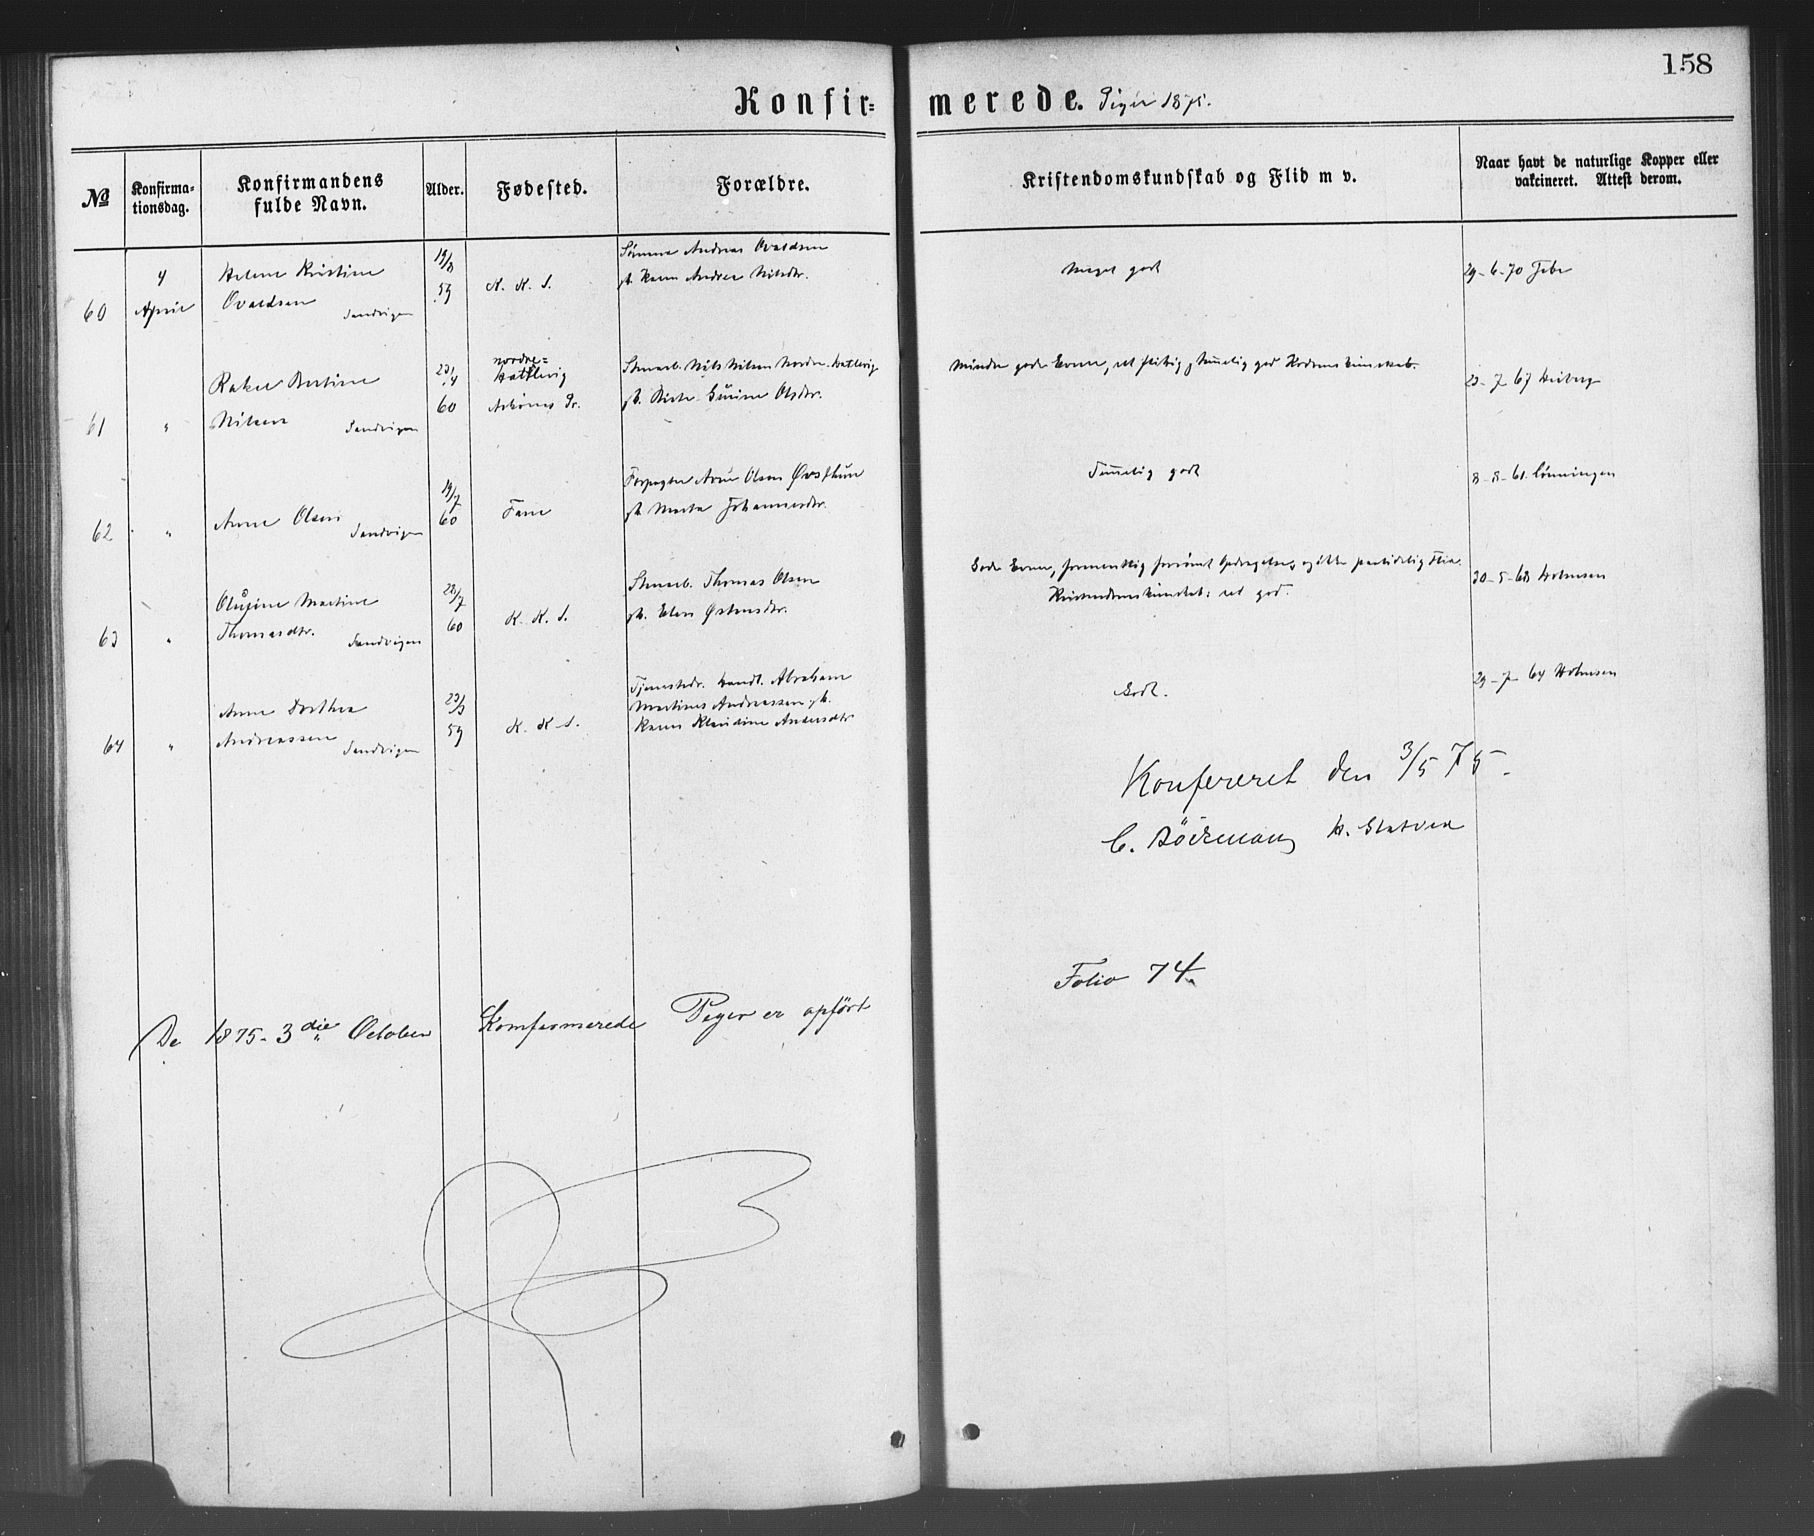 158
Konfir= merede. Piger 1875.
No
Konfirma-
tionsdag.
Konfirmandens
fulde Navn.
Alder.
Fødested.
Forældre.
Kristendomskundskab og Flid m v.
Naar havt de naturlige Kopper eller
vakcineret. Attest derom.
60
4
April
Helene Kristine
Ovaldsen Sandvigen
19/8
59
K. K. S.
Sömme Andreas Ovaldsen
gk. Karen Andrea Nilsdr.
Meget godt
29-6-70
61
"
Rakel Bertine
Nilsen Sandvigen
23/4
60
Nordre=
Hatlevig
Askönes Pr.
Stuearb. Nils Nilsen Nordre-Hatlevig
gk. Birte Gurine Olsdr.
Mindre gode Evner, ret flittig, temmelig god Kristenkundskab.
23-7-67 Heiberg
62
"
Anne Olsen Sandvigen
19/7
60
Fane
Forpagter Arne Olsen Øvsthun
gk. Marta Johannesdr.
Temmelig godt
8-8-61 Lönningen
63
"
Olufine Martine
Thomasdtr. Sandvigen
28/7
60
K. K. S.
Stuearb. Thomas Olsen
gk. Elen Østensdtr.
Gode Evner, formentlig forsömt Opdragelse, og ikke paalidelig Flid.
Kristendomskundskab: ret god.
30-5-68 Holmsen
64
"
Anne Dorthea
Andreassen Sandvigen
23/3
59
K. K. S.
Tjenestedr. Handl. Abraham
Martinus Andreassen gk.
Karen Klaudine Andersdtr
Godt.
29-7-64 Holmsen
Konfereret den 3/5 75.
C. Böckmann H. Sletven
De 1875-3die October Komfermerede Peger er opført
Folio 74.